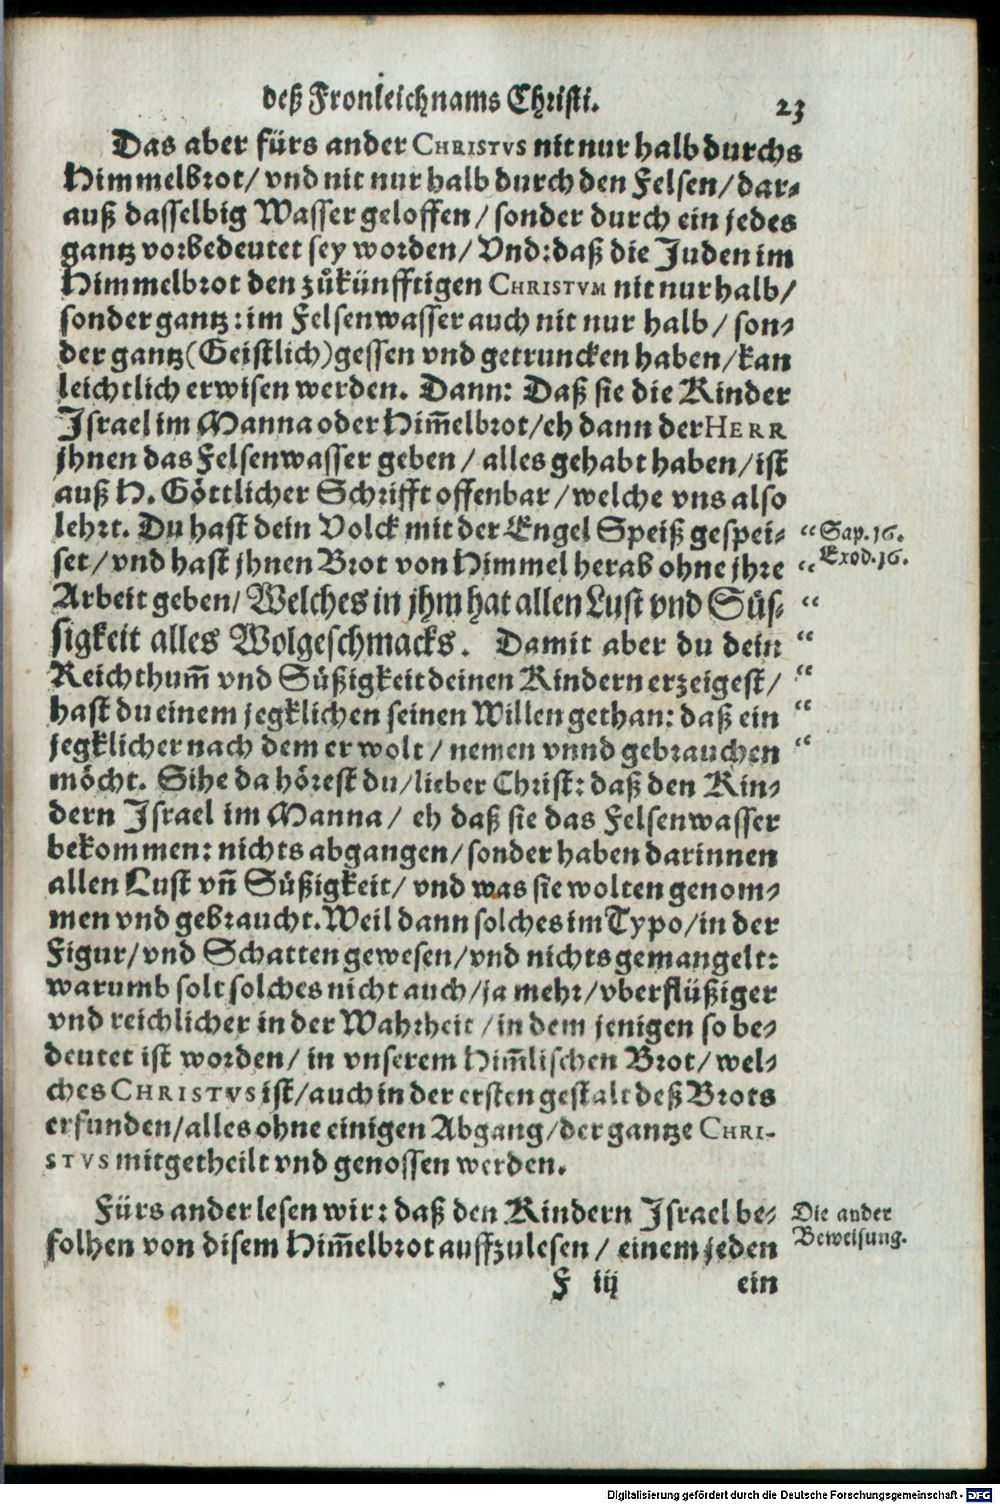 deß Fronleichnams Christi. 23
Das aber fürs ander CHRISTVS nit nur halb durchs
Himmelbrot/ vnd nit nur halb durch den Felsen/ dar-
auß dasselbig Wasser geloffen/ sonder durch ein jedes
gantz vorbedeutet sey worden/ Vnd: daß die Juden im
Himmelbrot den zůkünfftigen CHRISTVM nit nur halb/
sonder gantz: im Felsenwasser auch nit nur halb/ son-
der gantz (Geistlich) gessen vnd getruncken haben/ kan
leichtlich erwisen werden. Dann: Daß sie die Kinder
Israel im Manna oder Him̃elbrot/ eh dann der HERR
jhnen das Felsenwasser geben/ alles gehabt haben/ ist
auß H. Göttlicher Schrifft offenbar/ welche vns also
lehrt. Du hast dein Volck mit der Engel Speiß gespei- “ Sap. 16.
set/ vnd hast jhnen Brot von Himmel herab ohne jhre “ Exod. 16.
Arbeit geben/ Welches in jhm hat allen Lust vnd Süs- “
sigkeit alles Wolgeschmacks. Damit aber du dein “
Reichthum̃ vnd Süßigkeit deinen Kindern erzeigest/ “
hast du einem jegklichen seinen Willen gethan: daß ein “
jegklicher nach dem er wolt/ nemen vnnd gebrauchen “
möcht. Sihe da hörest du/ lieber Christ: daß den Kin-
dern Israel im Manna/ eh daß sie das Felsenwasser
bekommen: nichts abgangen/ sonder haben darinnen
allen Lust vn̄ Süßigkeit/ vnd was sie wolten genom-
men vnd gebraucht. Weil dann solches im Typo/ in der
Figur/ vnd Schatten gewesen/ vnd nichts gemangelt:
warumb solt solches nicht auch/ ja mehr/ vberflüßiger
vnd reichlicher in der Wahrheit/ in dem jenigen so be-
deutet ist worden/ in vnserem Him̃lischen Brot/ wel-
ches CHRISTVS ist/ auch in der ersten gestalt deß Brots
erfunden/ alles ohne einigen Abgang/ der gantze CHRI-
STVS mitgetheilt vnd genossen werden.
Fürs ander lesen wir: daß den Kindern Israel be- Die ander
folhen von disem Him̃elbrot auffzulesen/ einem jeden Beweisung.
F iij ein
Digitalisierung gefördert durch die Deutsche Forschungsgemeinschaft - DFG